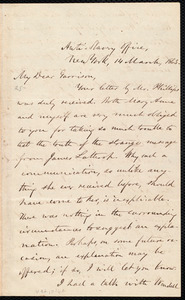 Anti-Slavery Office,
New York, 14 March, 186
My Dear Garrison,
Your letter by Mr. Phillips
was duly received. Both May Anna
and myself are very much obliged
to you for taking so much trouble to
test the truth of the strange message
from James Lathrop. Why such a
communication, so unlike any
thing she ever received before, should
have come to her, is inexplicable.
There was nothing in the surrounding
circumstances to suggest an expla-
nation. Perhaps on some future oc-
casion, an explanation may be
offered; if so, I will let you know.
I had a talk with Wendell